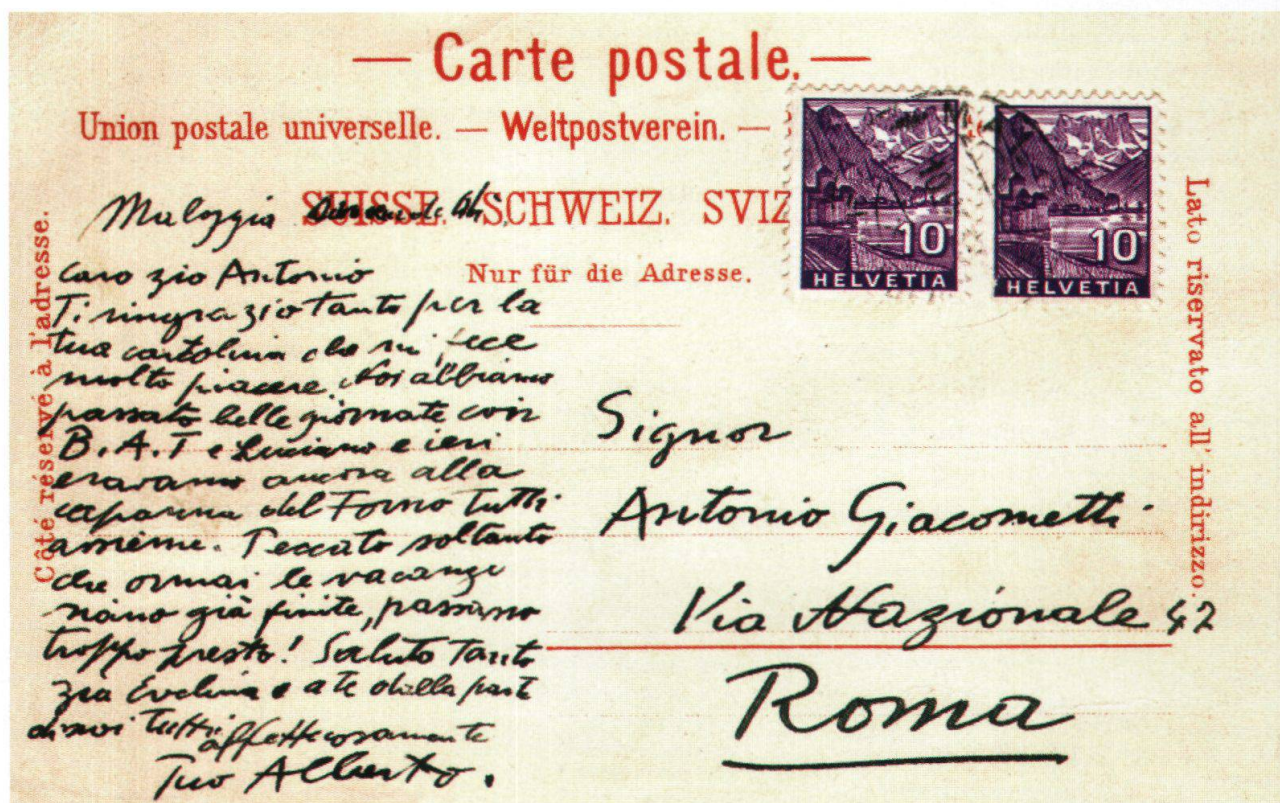 — Carte postale. —
Union postale universelle. — Weltpostverein. —
SUISSE. SCHWEIZ. SVIZ
Nur für die Adresse.
Côté réservé à l'adresse.
Lato riservato all' indirizzo.
10
HELVETIA
10
HELVETIA
Maloggia
Caro zio Antonio
Ti ringrazio tanto per la
tua cartolina che mi fece
molto piacere. Noi abbiamo
passato belle giornate con
B.A.T e Luciano e ieri
eravamo ancora alla
capanna del Forno tutti
assieme. Peccato soltanto
che ormai le vacanze
siano già finite, passano
troppo presto! Saluto tanto
zia Evelina e a te dalla parte
di noi tutti
affettuosamente
Tuo Alberto.
Signor
Antonio Giacometti
Via Nazionale 42
Roma